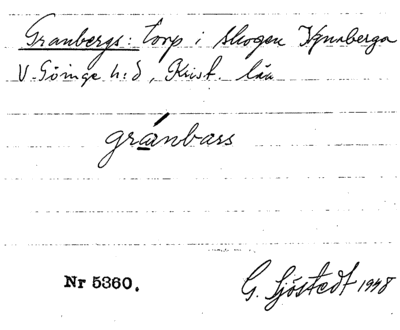 Granbergs: torp i skogen Ignaberga
V. Göinge h:d, Krist. län
gránbars
Nr 5360.
G. Sjöstedt 1948